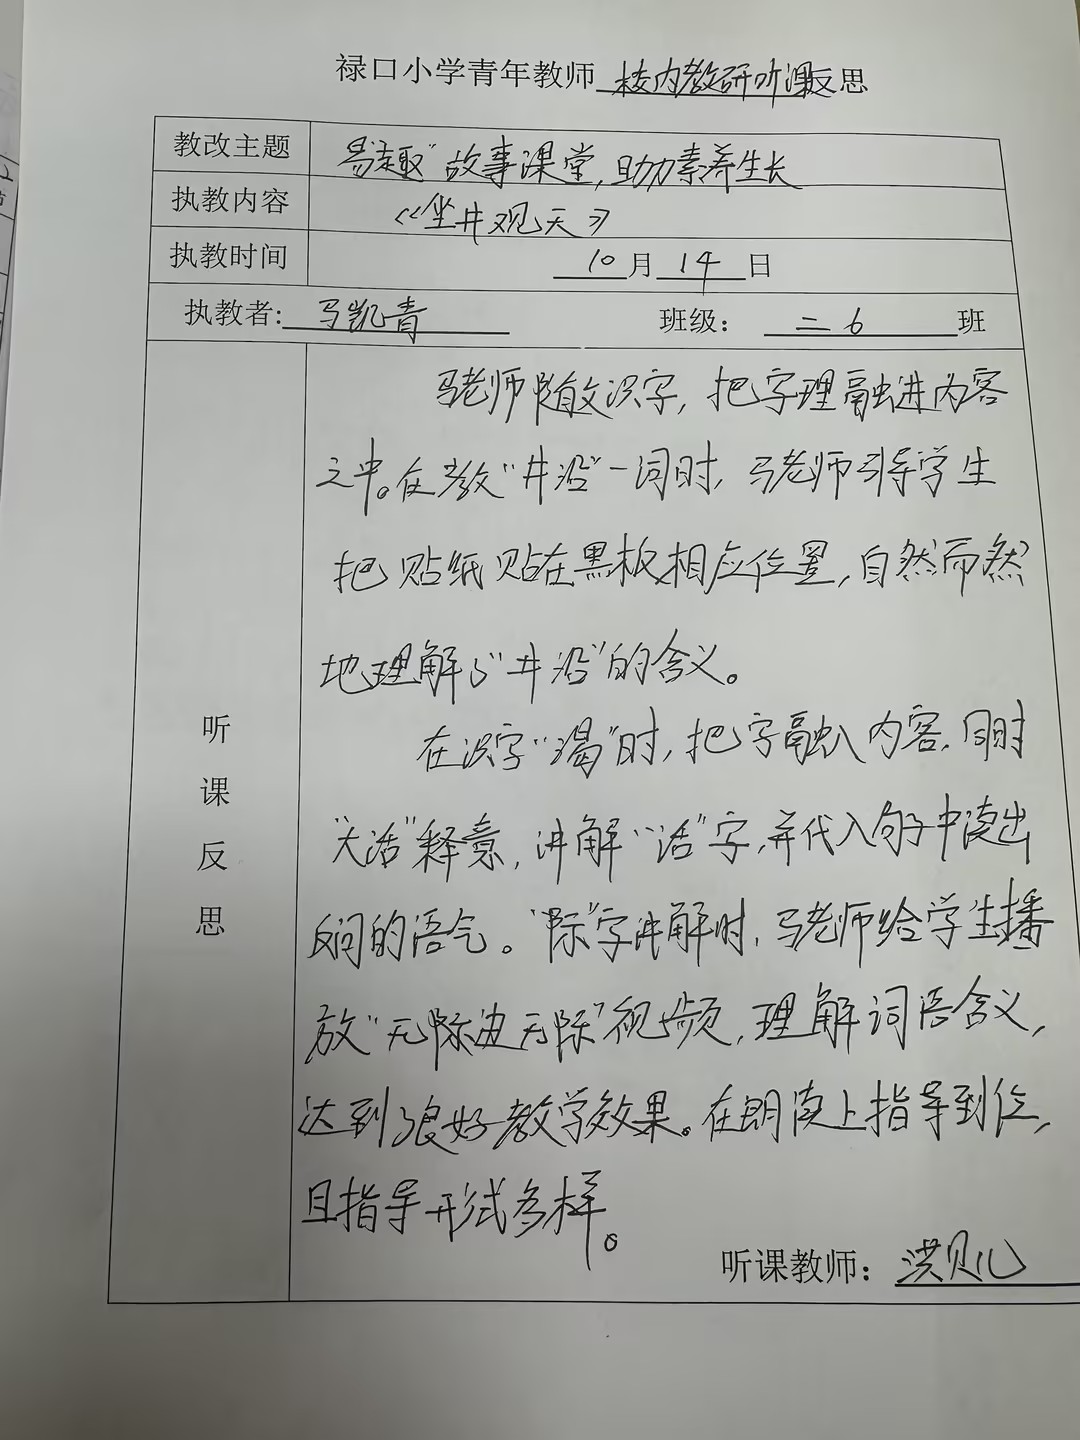 禄口小学青年教师 校内教研听课反思
教改主题 易趣"故事课堂，助力素养生长
执教内容 《坐井观天》
执教时间 10月14日
执教者: 马凯青 班级： 二6 班
听课反思
马老师随文识字，把字理融进内容
之中。在教"井沿"一词时，马老师引导学生
把贴纸贴在黑板相应位置，自然而然
地理解了"井沿"的含义。
在识字"渴"时，把字融入内容，同时
"大话"释意，讲解"话"字，并代入句子中读出
反问的语气。"际"字讲解时，马老师给学生播
放"无际边无际"视频，理解词语含义，
达到很好教学效果。在朗读上指导到位，
且指导形式多样。
听课教师：洪贝儿